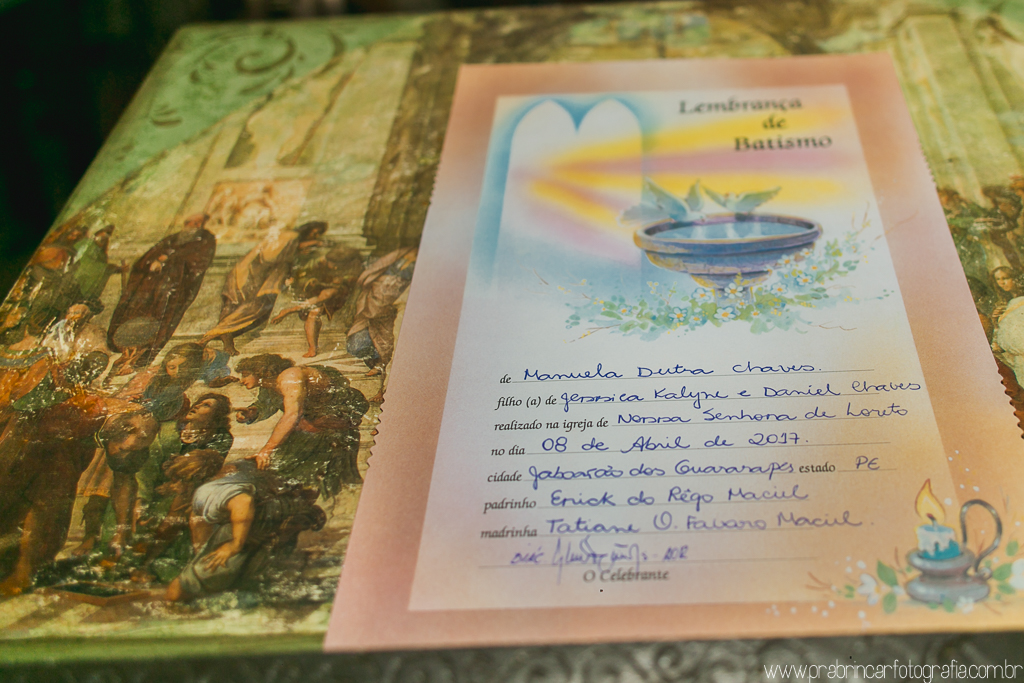 Lembrança
de
Batismo
de Manuela Dutra Chaves.
filho (a) de Jessica Kalyne e Daniel Chaves
realizado na igreja de Nossa Senhora de Loreto
no dia 08 de Abril de 2017.
cidade Jaboatão dos Guararapes estado PE
padrinho Erick do Rêgo Maciel
madrinha Tatiane O. Favaro Maciel.
O Celebrante
www.prabrincarfotografia.com.br